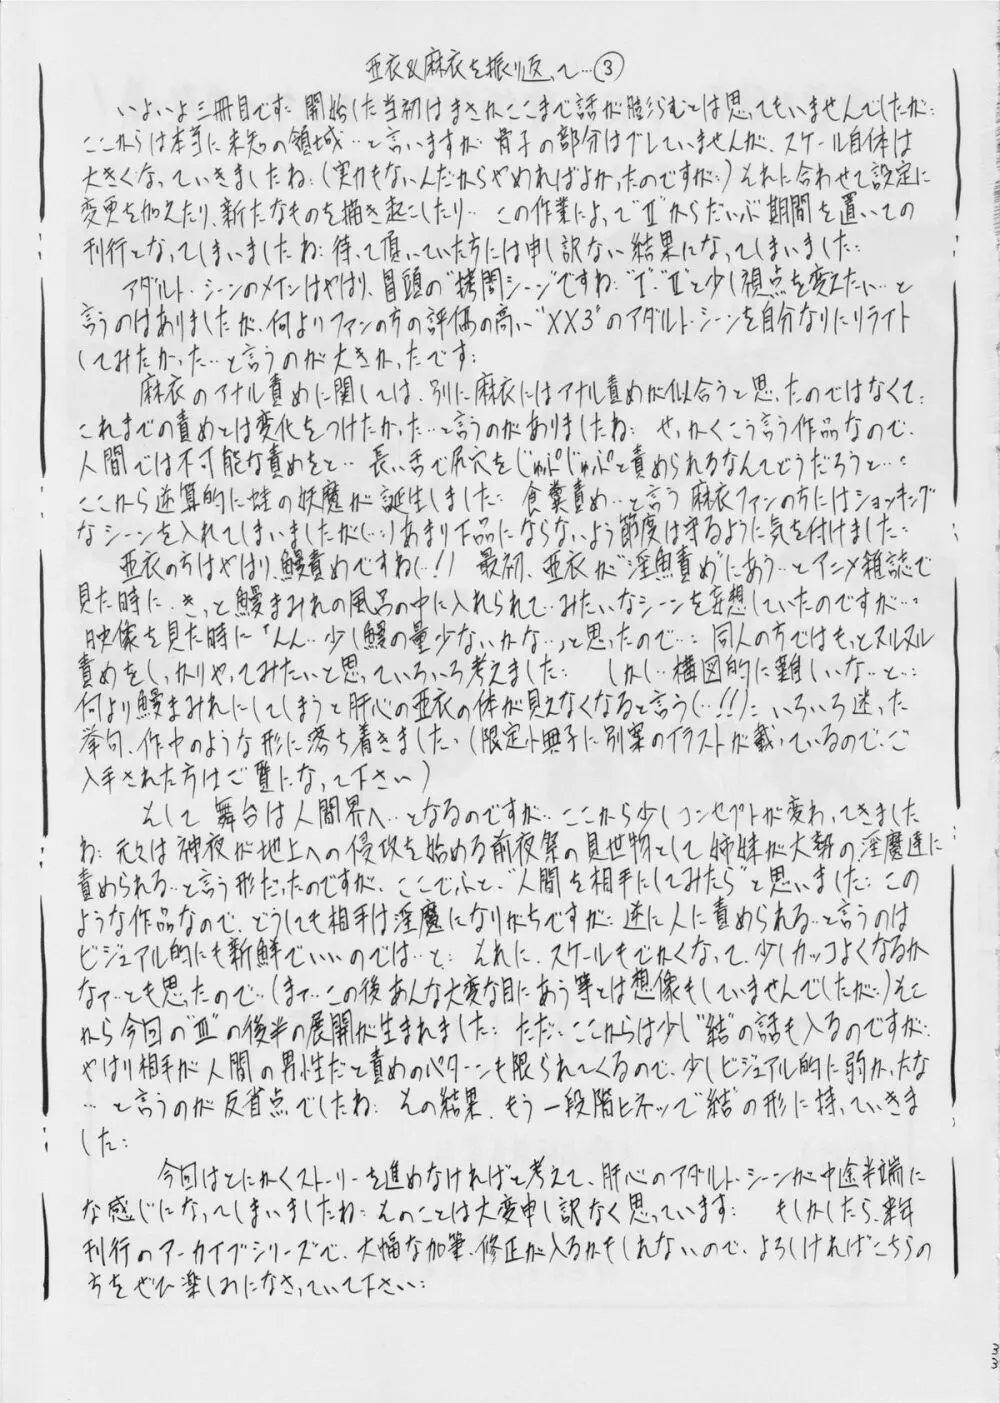 亜衣&麻衣を振り返って…③
いよいよ三冊目です… 開始した当初はまさかここまで話が膨らむとは思ってもいませんでしたが…
ここからは本当に未知の領域…と言いますが 骨子の部分はブレていませんが、スケール自体は
大きくなっていきましたね…(実力もないんだからやめればよかったのですが…)それに合わせて設定に
変更を加えたり、新たなものを描き起こしたり… この作業によって"Ⅱ"からだいぶ期間を置いての
刊行となってしまいましたね… 待って頂いていた方には申し訳ない結果になってしまいました…
アダルト・シーンのメインはやはり、冒頭の"拷問シーン"ですね… "Ⅰ"、"Ⅱ"と少し視点を変えたい…と
言うのはありましたが、何よりファンの方の評価の高い"XX3"のアダルト・シーンを自分なりにリライト
してみたかった…と言うのが大きかったです…
麻衣のアナル責めに関しては、別に麻衣にはアナル責めが似合うと思ったのではなくて…
これまでの責めとは変化をつけたかった…と言うのがありましたね… せっかくこう言う作品なので、
人間では不可能な責めをと… 長い舌で尻穴をじゅぷじゅぷと責められるなんてどうだろうと…
ここから逆算的に蛙の妖魔が誕生しました… 食糞責め…と言う麻衣ファンの方にはショッキング
なシーンを入れてしまいましたが(…)あまり下品にならないよう節度は守るように気を付けました…
亜衣の方はやはり、鰻責めですね(…!!) 最初、亜衣が"淫魚責め"にあう…とアニメ雑誌で
見た時に、きっと鰻まみれの風呂の中に入れられて…みたいなシーンを妄想していたのですが…
映像を見た時に「んん…少し鰻の量少ないかな…」と思ったので… 同人の方ではもっとヌルヌル
責めをしっかりやってみたいと思っていろいろ考えました… しかし…構図的に難しいな…と…
何より鰻まみれにしてしまうと肝心の亜衣の体が見えなくなると言う(…!!)… いろいろ迷った
挙句、作中のような形に落ち着きました、(限定小冊子に別案のイラストが載っているので、ご
入手された方はご覧になって下さい)
そして 舞台は人間界へ…となるのですが… ここから少しコンセプトが変わってきました
ね… 元々は神夜が地上への侵攻を始める前夜祭の見世物として姉妹が大勢の淫魔達に
責められる…と言う形だったのですが、ここでふと、"人間を相手にしてみたら"と思いました… この
ような作品なので、どうしても相手は淫魔になりがちですが… 逆に人に責められる…と言うのは
ビジュアル的にも新鮮でいいのでは…と… それに、スケールもでかくなって、少しカッコよくなるか
なァ…とも思ったので…(まァ…この後あんな大変な目にあう等とは想像もしていませんでしたが…)そこ
から今回の"Ⅲ"の後半の展開が生まれました… ただ…ここからは少し"結"の話も入るのですが…
やはり相手が人間の男性だと責めのパターンも限られてくるので、少しビジュアル的に弱かったな
…と言うのが反省点でしたね… その結果、もう一段階ヒネって"結"の形に持っていきま
した…
今回はとにかくストーリーを進めなければと考えて、肝心のアダルト・シーンが中途半端に
な感じになってしまいましたね… そのことは大変申し訳なく思っています… もしかしたら、来年
刊行のアーカイブシリーズで、大幅な加筆、修正が入るかもしれないので、よろしければこちらの
方をぜひ楽しみになさっていて下さい…
33